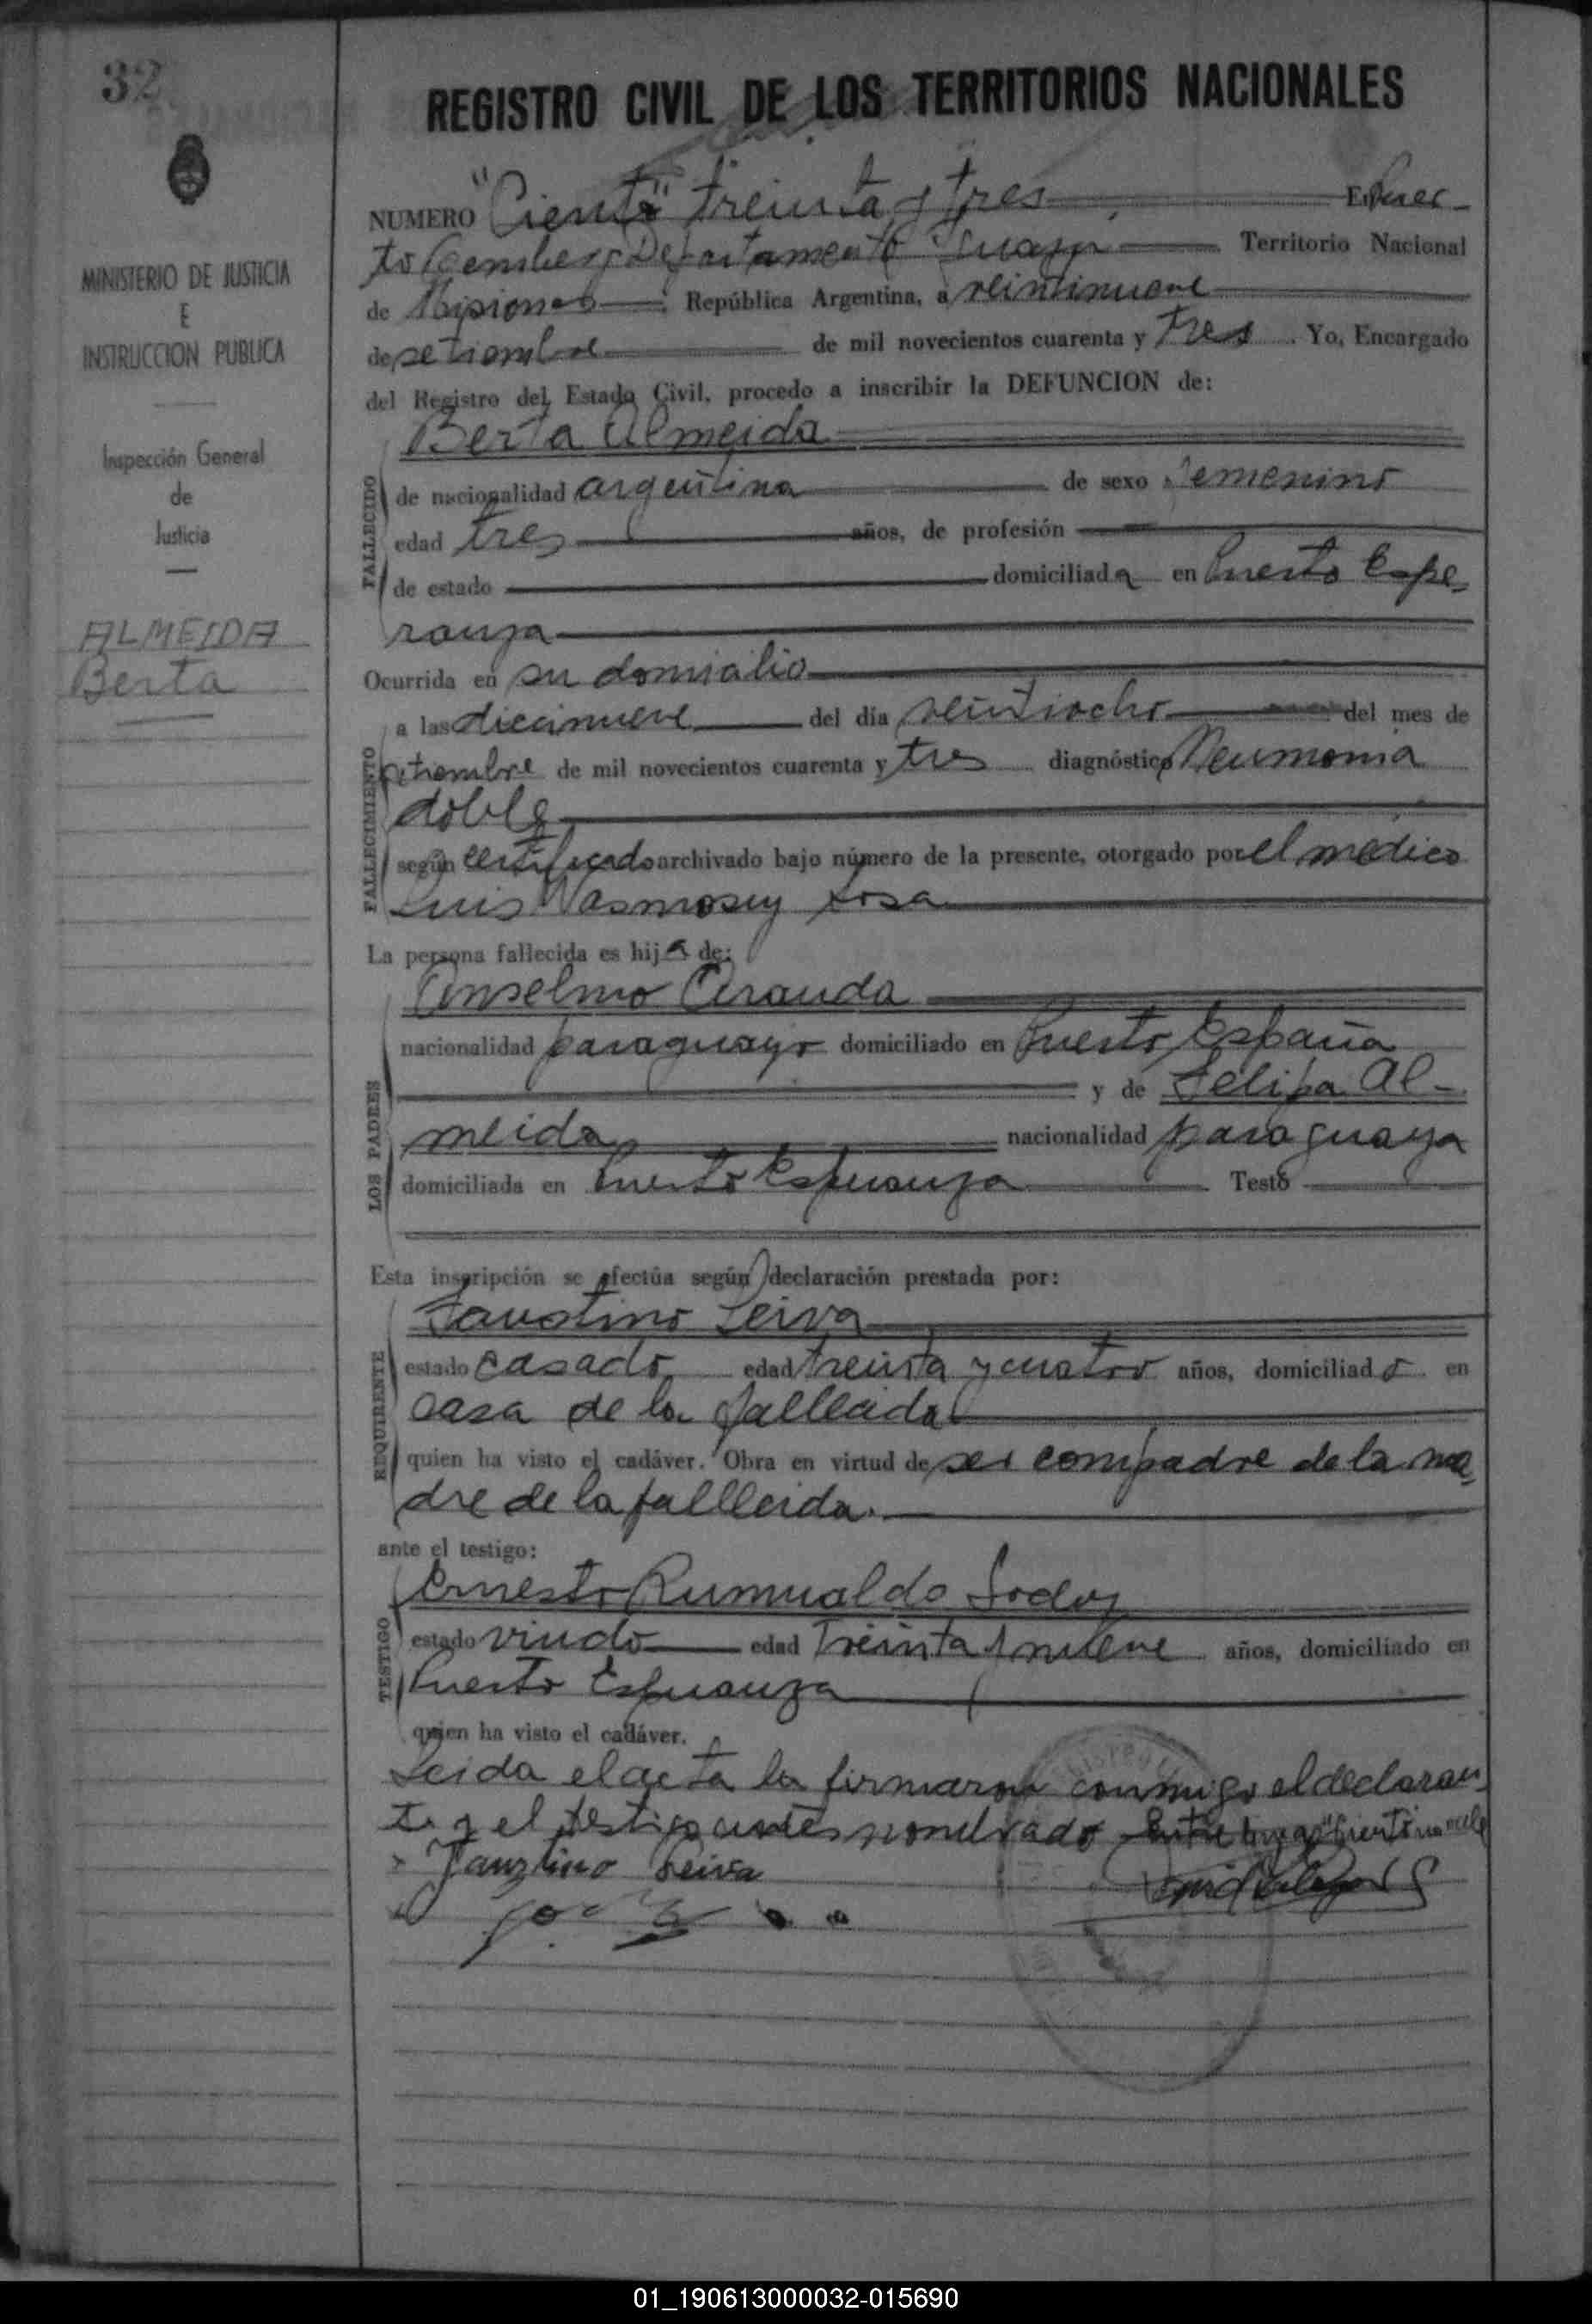 32
MINISTERIO DE JUSTICIA
E
INSTRUCCION PUBLICA
Inspección General
de
Justicia
ALMEIDA
Berta
REGISTRO CIVIL DE LOS TERRITORIOS NACIONALES
NUMERO "Ciento" treinta y tres En Puer-
to Departamento Iguazú Territorio Nacional
de Misiones República Argentina, a veintinueve
de setiembre de mil novecientos cuarenta y tres. Yo, Encargado
del Registro del Estado Civil, procedo a inscribir la DEFUNCION de:
Berta Almeida
FALLECIDO
de nacionalidad argentina de sexo femenino
edad tres años, de profesión
de estado domiciliada en Puerto Espe-
ranza
Ocurrida en su domicilio
FALLECIMIENTO
a las diecinueve del día veintiocho del mes de
setiembre de mil novecientos cuarenta y tres diagnóstico Neumonia
doble
según certificado archivado bajo número de la presente, otorgado por el médico
Luis Wasmosuy Sosa
La persona fallecida es hija de:
Anselmo Aranda
LOS PADRES
nacionalidad paraguayo domiciliado en Puerto España
y de Felipa Al-
meida nacionalidad paraguaya
domiciliada en Puerto Esperanza Testó
Esta inscripción se efectúa según declaración prestada por:
Faustino Leiva
REQUIRENTE
estado casado edad treinta y cuatro años, domiciliado en
casa de la fallecida
quien ha visto el cadáver. Obra en virtud de ser compadre de la ma-
dre de la fallecida.
ante el testigo:
Ernesto Rumualdo Godoy
TESTIGO
estado viudo edad Treinta y nueve años, domiciliado en
Puerto Esperanza
quien ha visto el cadáver.
Leida el acta la firmaron conmigo el declaran-
te y el testigo antes nombrado
Faustino Leiva
01_190613000032-015690